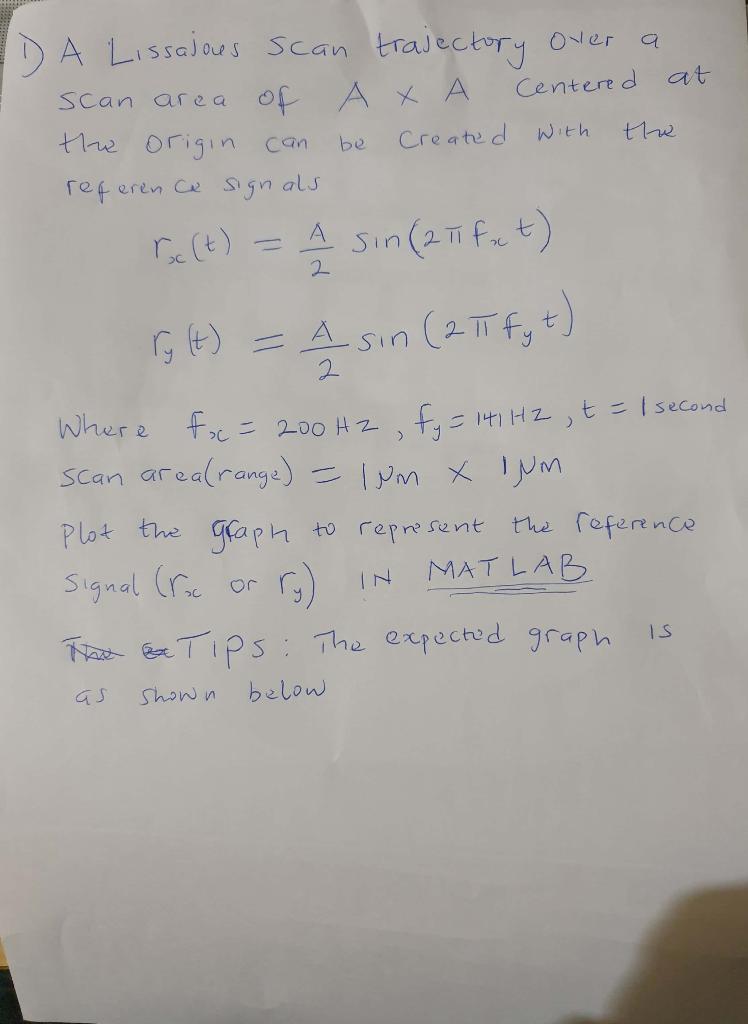 1) A Lissajous scan trajectory over a
scan area of A x A Centered at
the origin can be Created with the
reference signals
rx(t) = A/2 sin(2πfxt)
ry(t) = A/2 sin(2πfyt)
Where fx = 200HZ, fy = 141HZ, t = 1 second
scan area(range) = 1μm x 1μm
Plot the graph to represent the reference
Signal (rx or ry) IN MATLAB
The TIPS: The expected graph is
as shown below